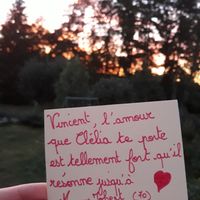 Vincent, l'amour
que Clélia te porte
est tellement fort qu'il
résonne jusqu'à
(70)